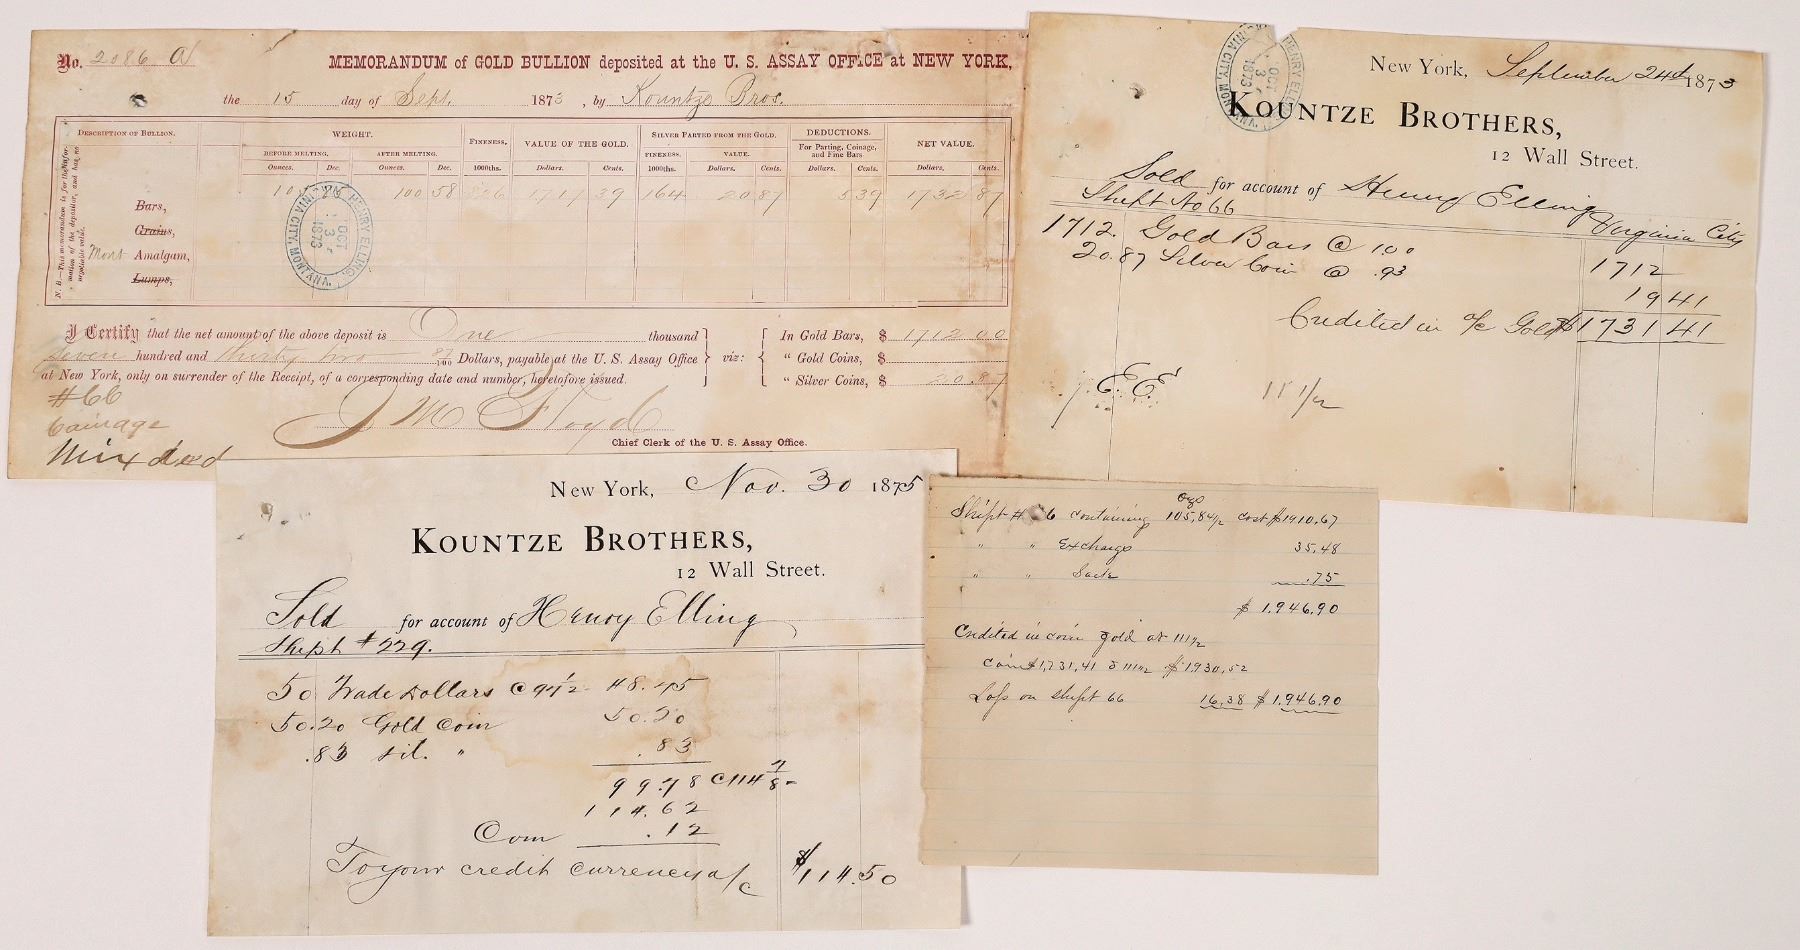 No. 2086 A
MEMORANDUM of GOLD BULLION deposited at the U. S. ASSAY OFFICE at NEW YORK,
the 15 day of Sept. 1873, by Kountze Bros.
DESCRIPTION OF BULLION.
WEIGHT.
BEFORE MELTING.
AFTER MELTING.
Ounces. Dec. Ounces. Dec.
FINENESS.
1000ths.
VALUE OF THE GOLD.
Dollars. Cents.
SILVER PARTED FROM THE GOLD.
FINENESS. VALUE.
1000ths. Dollars. Cents.
DEDUCTIONS.
For Parting, Coinage, and Fine Bars
Dollars. Cents.
NET VALUE.
Dollars. Cents.
N. B.—This memorandum is for the information of the depositor, and has no negotiable value.
100 58 826 1717 39 164 20 87 5 39 1732 87
Bars,
Grains,
Mont Amalgam,
Lumps,
HENRY ELLING
OCT
3
1873
VIRGINIA CITY, MONTANA
I Certify that the net amount of the above deposit is One thousand
Seven hundred and thirty two 87/100 Dollars, payable at the U. S. Assay Office
at New York, only on surrender of the Receipt, of a corresponding date and number, heretofore issued.
viz:
In Gold Bars, $ 1712.00
" Gold Coins, $
" Silver Coins, $ 20.87
#66
Coinage
J M Floyd
Chief Clerk of the U. S. Assay Office.
HENRY ELLING
OCT
3
1873
VIRGINIA CITY, MONTANA
New York, September 24th 1873
KOUNTZE BROTHERS,
12 Wall Street.
Sold for account of Henry Elling
Shipt No 66 Virginia City
1712. Gold Bars @ 100 1712
20.87 Silver Coin @ .93 1941
Credited in a/c Gold $ 1731 41
E. E.
111 1/2
New York, Nov. 30 1875
KOUNTZE BROTHERS,
12 Wall Street.
Sold for account of Henry Elling
Shipt #229.
50 Trade Dollars @ 97 1/2 48.75
50.20 Gold Coin 50.20
.83 sil. " .83
99.78 @ 114 7/8 -
114.62
Com .12
To your credit currency a/c $114.50
Shipt # 66 containing 105,84 1/2 ozs cost $1910,67
" " Exchange 35,48
" " Sack .75
$ 1,946,90
Credited in coin gold at 111 1/2
Coin $1,731,41 @ 111 1/2 $ 1930,52
Loss on shipt 66 16,38 $ 1,946,90